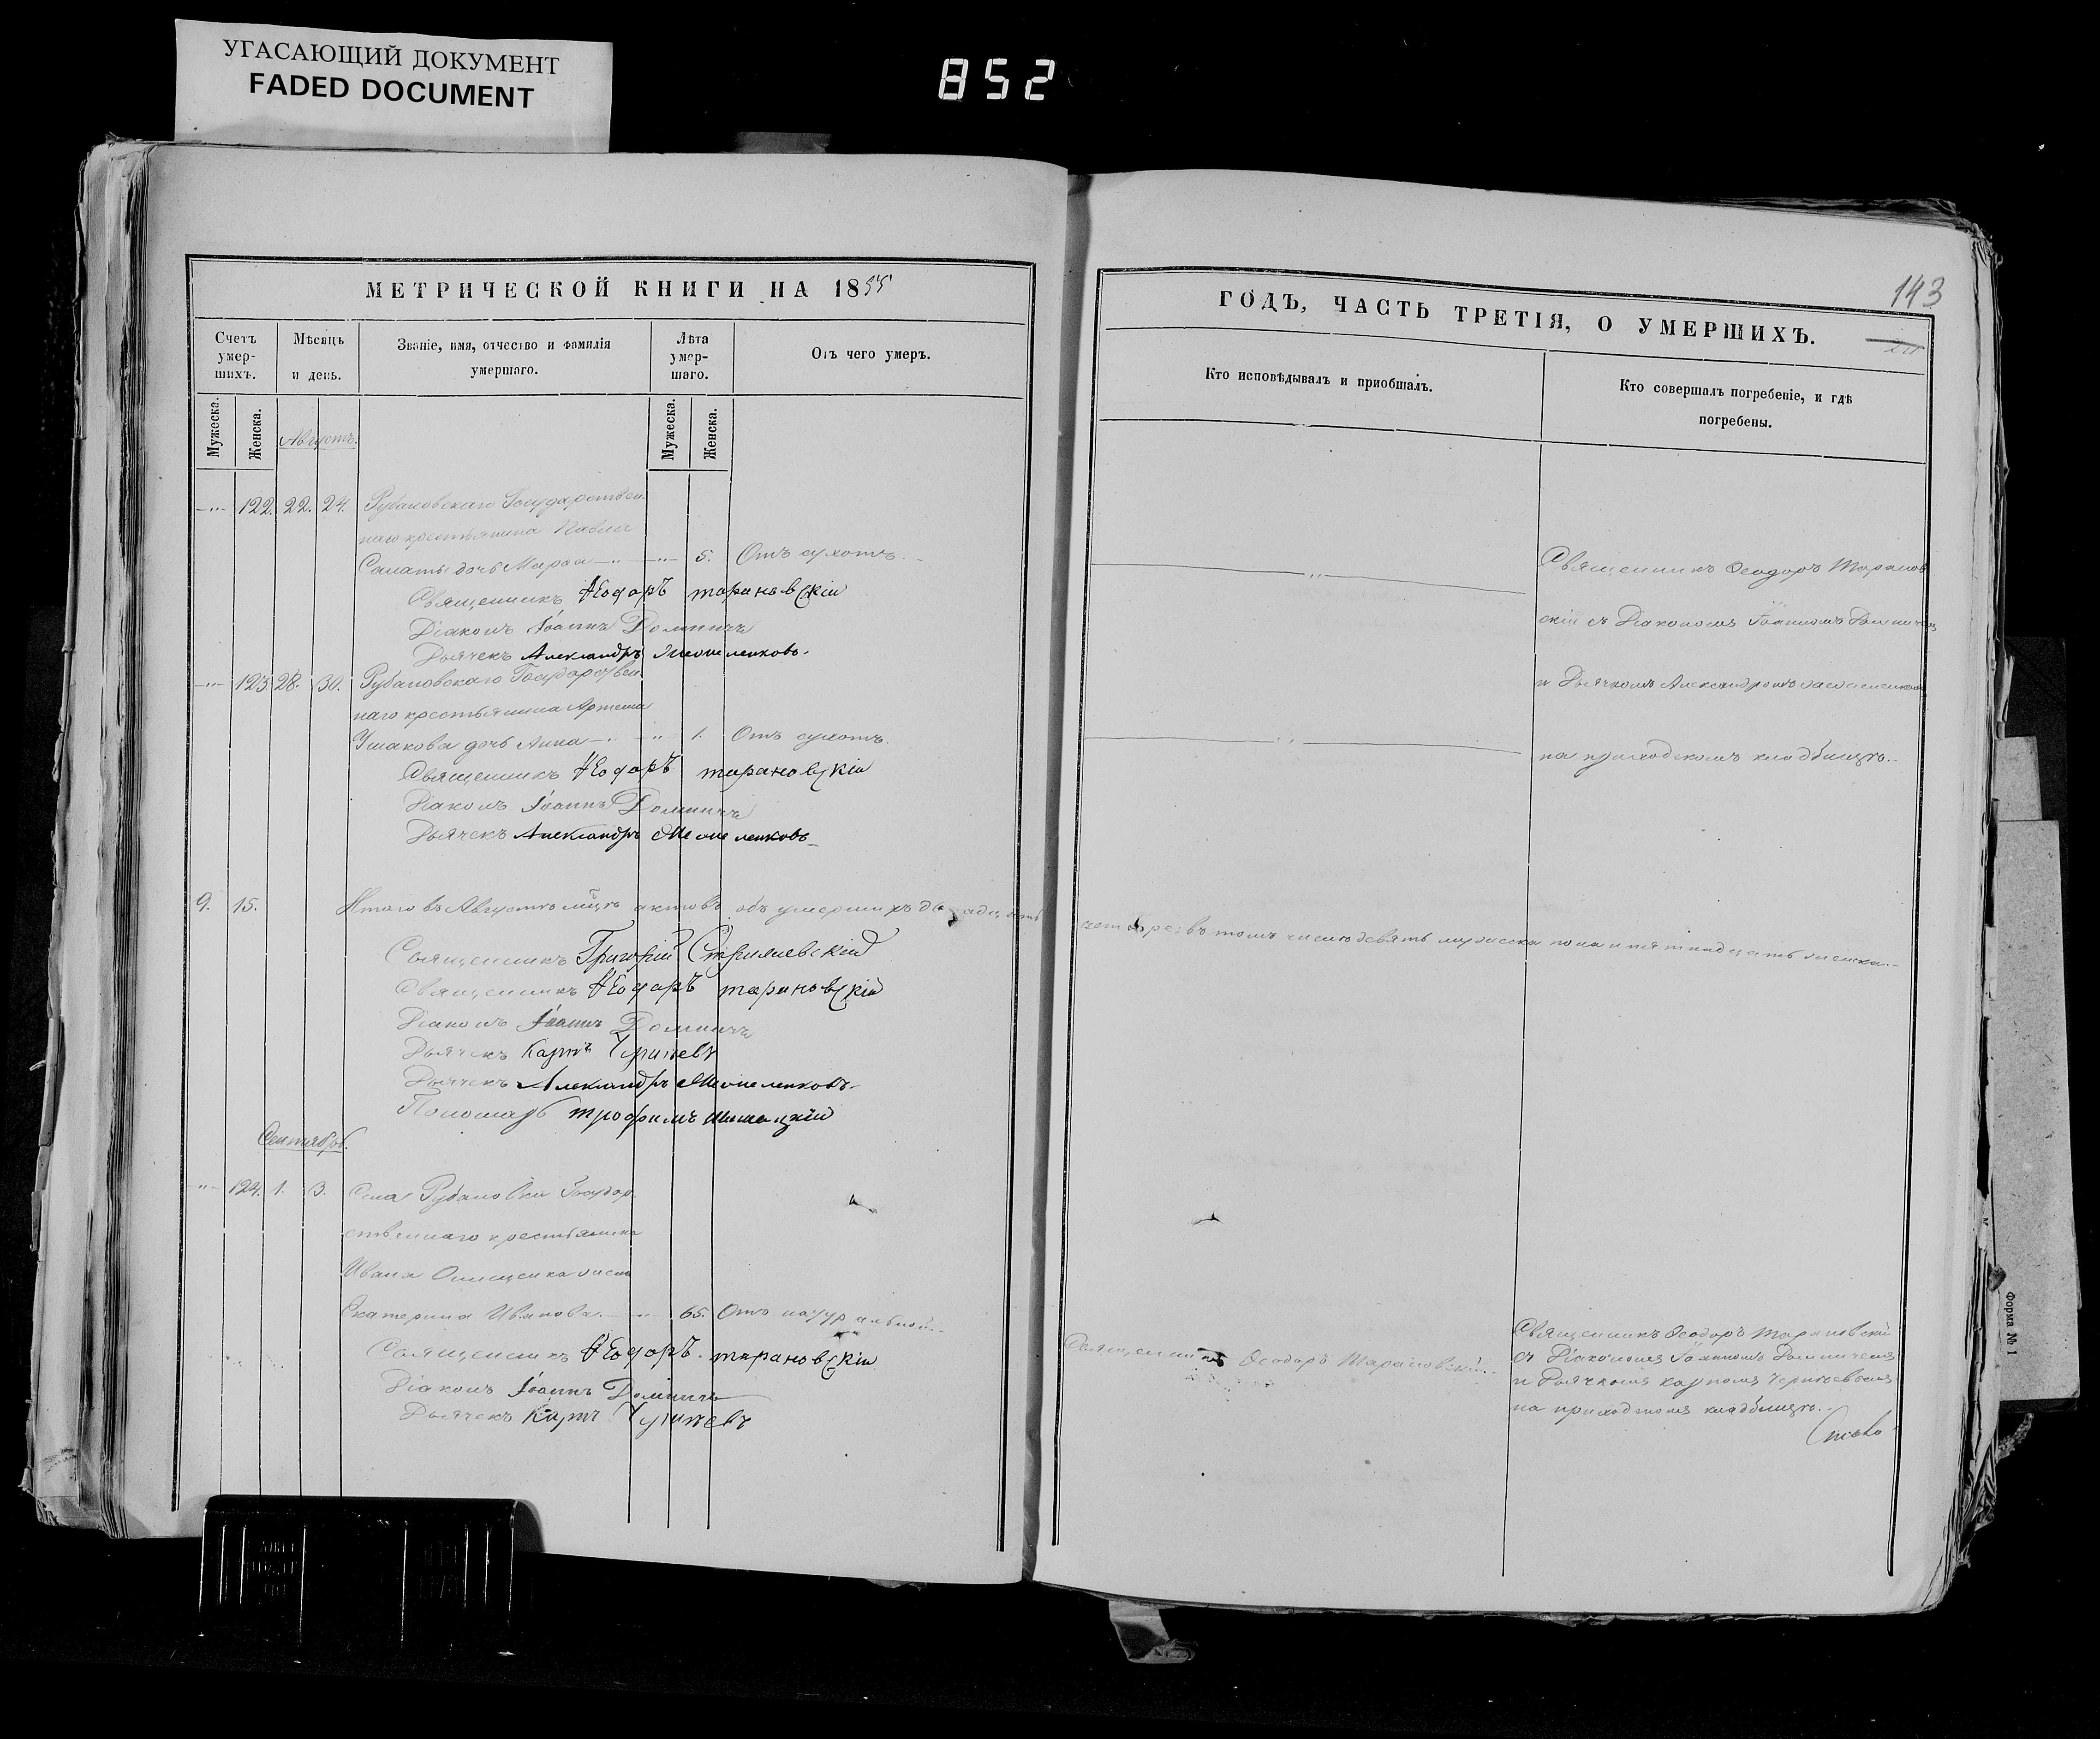 УГАСАЮЩИЙ ДОКУМЕНТ
FADED DOCUMENT
852
МЕТРИЧЕСКОЙ КНИГИ НА 1855
Счетъ умер-шихъ.
Мѣсяцъ и день.
Званіе, имя, отчество и фамилія умершаго.
Лѣта умер-шаго.
Отъ чего умеръ.
Мужеска.
Женска.
Августъ.
Мужеска.
Женска.
122. 22. 24. Рубановскаго Государствен-
наго крестьянина Павла
Салаты дочь Марѳа 5. Отъ сухотъ.
Священникъ Ѳеодоръ Тарановскій
Діаконъ Іоаннъ
Дьячекъ Александръ
123. 28. 30. Рубановскаго Государствен-
наго крестьянина Артема
Ушакова дочь Анна 1. Отъ сухотъ.
Священникъ Ѳеодоръ Тарановскій
Діаконъ Іоаннъ
Дьячекъ Александръ
9. 15. Итого въ Августѣ мѣсяцѣ актовъ объ умершихъ двадцать
Священникъ Григорій
Священникъ Ѳеодоръ Тарановскій
Діаконъ Іоаннъ
Дьячекъ Карпъ
Дьячекъ Александръ
Пономарь Трофимъ
Сентябрь.
124. 1. 3. Села Рубановки Государ-
ственнаго крестьянина
Ивана Онищенка жена
Екатерина Иванова. 65. Отъ натуральной.
Священникъ Ѳеодоръ Тарановскій
Діаконъ Іоаннъ
Дьячекъ Карпъ
143
ГОДЪ, ЧАСТЬ ТРЕТІЯ, О УМЕРШИХЪ.
Кто исповѣдывалъ и пріобщалъ.
Кто совершалъ погребеніе, и гдѣ погребены.
Священникъ Ѳеодоръ Таранов-
скій съ Діакономъ Іоанномъ
и Дьячкомъ Александромъ
на приходскомъ кладбищѣ.
четыре; въ томъ числѣ девять мужеска пола и пятнадцать женска.
Священникъ Ѳеодоръ Тарановскій.
Священникъ Ѳеодоръ Тарановскій
съ Діакономъ Іоанномъ
и Дьячкомъ Карпомъ
на приходскомъ кладбищѣ.
Форма № 1